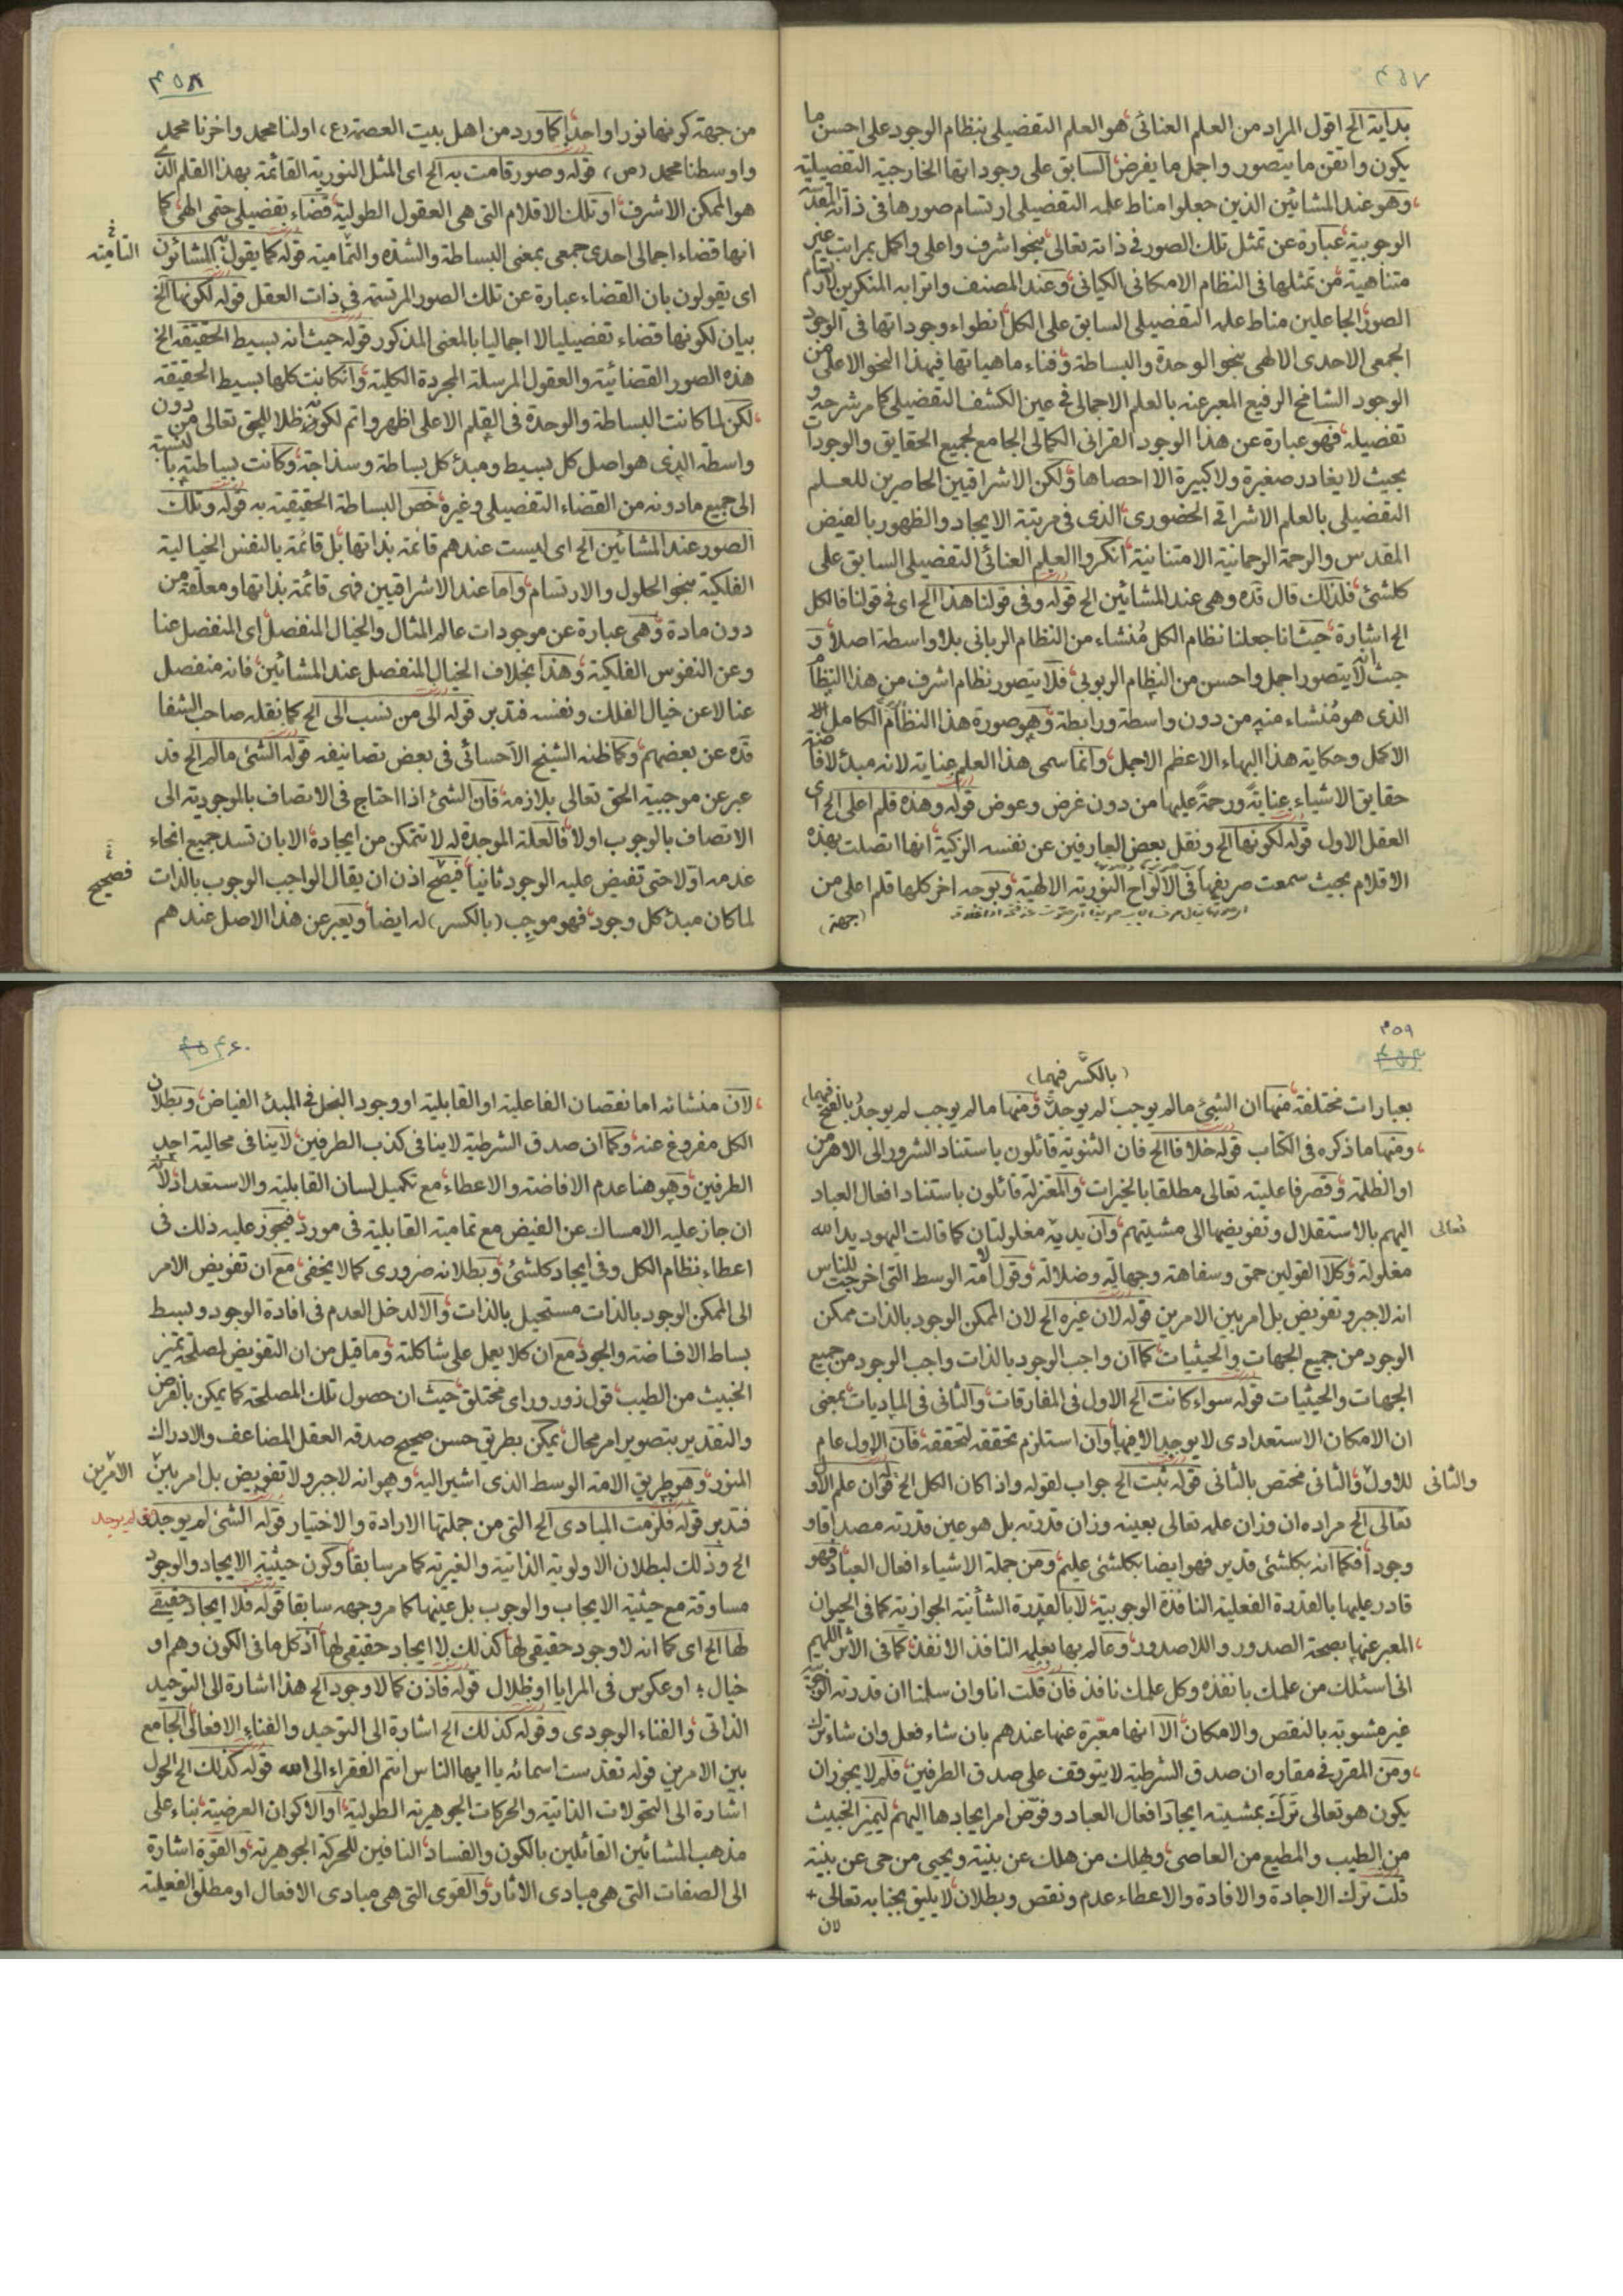 ٤٥٧
بدایته الخ اقول المراد من العلم العنائی هو العلم التفصیلی بنظام الوجود علی احسن ما
یکون واتقن ما یتصور واجمل ما یفرض السابق علی وجوداتها الخارجیة التفصیلیة
وهو عند المشائین الذین جعلوا مناط علمه التفصیلی ارتسام صورها فی ذاته المقدسة
الوجوبیة عبارة عن تمثل تلک الصور فی ذاته تعالی بنحو اشرف واعلی واکمل بمراتب غیر
متناهیة من تمثلها فی النظام الامکانی الکیانی وعند المصنف واترابه المنکرین لارتسام
الصور الجاعلین مناط علمه التفصیلی السابق علی الکل انطواء وجوداتها فی الوجود
الجمعی الاحدی الالهی بنحو الوحدة والبساطة وفناء ماهیاتها فیهذا النحو الاعلی من
الوجود الشامخ الرفیع المعبر عنه بالعلم الاجمالی فی عین الکشف التفصیلی کما مر شرحه و
تفصیله فهو عبارة عن هذا الوجود القرانی الکمالی الجامع لجمیع الحقایق والوجودات
بحیث لا یغادر صغیرة ولا کبیرة الا احصاها ولکن الاشراقیین الحاصرین للعلم
التفصیلی بالعلم الاشراقی الحضوری الذی فی مرتبة الایجاد والظهور بالفیض
المقدس والرحمة الرحمانیة الامتنانیة انکروا العلم العنائی التفصیلی السابق علی
کلشئ فلذلک قال قده وهی عند المشائین الخ قوله وفی قولنا هذا الخ ای فی قولنا فالکل
الخ اشارة حیث انا جعلنا نظام الکل مُنشاء من النظام الربانی بلا واسطة اصلا و
حیث انه لا یتصور اجمل واحسن من النظام الربوبی فلا یتصور نظام اشرف من هذا النظام
الذی هو مُنشاء منه من دون واسطة ورابطة وهو صورة هذا النظام الکامل الا
الاکمل وحکایة هذا البهاء الاعظم الاجمل وانما سمی هذا العلم عنایة لانه مبدء لافاضة
حقایق الاشیاء عنایةً ورحمةً علیها من دون غرض وعوض قوله وهذه قلم اعلی الخ ای
العقل الاول قوله لکونها الخ ونقل بعض العارفین عن نفسه الزکیة انها اتصلت بهذه
الاقلام بحیث سمعت صریفها فی الالواح النوریة الالهیة وبوجه اخر کلها قلم اعلی من
(جهة)
٤٥٨
من جهة کونها نورا واحدا کما ورد من اهل بیت العصمة (ع) اولنا محمد واخرنا محمد
واوسطنا محمد (ص) قوله وصور قامت به الخ ای المثل النوریة القائمة بهذا القلم الذی
هو الممکن الاشرف او تلک الاقلام التی هی العقول الطولیة قضاء تفصیلی حتمی الهی کما
انها قضاء اجمالی احدی جمعی بمعنی البساطة والشدة والتمامیة قوله کما یقول المشائون
التامیته
ای یقولون بان القضاء عبارة عن تلک الصور المرتسمة فی ذات العقل قوله لکونها الخ
بیان لکونها قضاء تفصیلیا لا اجمالیا بالمعنی المذکور قوله حیث انه بسیط الحقیقة الخ
هذه الصور القضائیة والعقول المرسلة المجردة الکلیة وانکانت کلها بسیط الحقیقة
لکن لما کانت البساطة والوحدة فی القلم الاعلی اظهر واتم لکونه ظلا للحق تعالی من دون
واسطة الذی هو اصل کل بسیط ومبدء کل بساطة وسذاجة وکانت بساطته بالنسبة
الی جمیع مادونه من القضاء التفصیلی وغیره خص البساطة الحقیقیة به قوله وتلک
الصور عند المشائین الخ ای لیست عندهم قائمة بذاتها بل قائمة بالنفس الخیالیة
الفلکیة بنحو الحلول والارتسام واما عند الاشراقیین فهی قائمة بذاتها ومعلقة من
دون مادة وهی عبارة عن موجودات عالم المثال والخیال المنفصل ای المنفصل عنا
وعن النفوس الفلکیة وهذا بخلاف الخیال المنفصل عند المشائین فانه منفصل
عنا لا عن خیال الفلک ونفسه فتدبر قوله الی من نسب الی الخ کما نقله صاحب الشفا
قده عن بعضهم وکما ظنه الشیخ الاحسائی فی بعض تصانیفه قوله الشئ مالم الخ قد
عبر عن موجبیة الحق تعالی بلازمه فان الشئ اذا احتاج فی الاتصاف بالموجودیة الی
الاتصاف بالوجوب اولا فالعلة الموجدة له لا تتمکن من ایجاده الا بان تسد جمیع انحاء
عدمه اولا حتی تفیض علیه الوجود ثانیا فیصح اذن ان یقال الواجب الوجوب بالذات
فصحیح
لما کان مبدء کل وجود فهو موجِب (بالکسر) له ایضا ویعبر عن هذا الاصل عندهم
٤٥٩
(بالکسر فیهما)
بعبارات مختلفة منها ان الشئ مالم یوجب لم یوجد ومنها مالم یوجب لم یوجد بالفتح فیهما
ومنها ما ذکره فی الکتاب قوله خلافا الخ فان الثنویة قائلون باستناد الشرور الی الاهرمن
او الظلمة وقصر فاعلیته تعالی مطلقا بالخیرات والمعتزلة قائلون باستناد افعال العباد
الیهم بالاستقلال وتفویضها الی مشیتهم وان یدیه مغلولتان کما قالت الیهود ید الله
تعالی
مغلولة وکلا القولین حمق وسفاهة وجهالة وضلالة وقول الامة الوسط التی اخرجت للناس
انه لا جبر وتفویض بل امر بین الامرین قوله لان غیره الخ لان الممکن الوجود بالذات ممکن
الوجود من جمیع الجهات والحیثیات کما ان واجب الوجود بالذات واجب الوجود من جمیع
الجهات والحیثیات قوله سواء کانت الخ الاول فی المفارقات والثانی فی المادیات بمعنی
ان الامکان الاستعدادی لا یوجد الا فیها وان استلزم تحققه لتحققه فان الاول عام
والثانی
للاول والثانی مختص بالثانی قوله ثبت الخ جواب لقوله واذا کان الکل الخ قوله ان علم الاول
تعالی الخ مراده ان وزان علمه تعالی بعینه وزان قدرته بل هو عین قدرته مصداقا و
وجودا فکما انه بکلشئ قدیر فهو ایضا بکلشئ علیم ومن جملة الاشیاء افعال العباد فهو
قادر علیها بالقدرة الفعلیة النافذة الوجوبیة لا بالقدرة الشأنیة الجوازیة کما فی الحیوان
المعبر عنها بصحة الصدور واللاصدور وعالم بها بعلمه النافذ الانفذ کما فی الاثر اللهم
انی اسئلک من علمک بانفذه وکل علمک نافذ فان قلت انا وان سلمنا ان قدرته الوجوبیة
غیر مشوبة بالنقص والامکان الا انها معبّرة عنها عندهم بان شاء فعل وان شاء ترک
ومن المقرر فی مقاره ان صدق الشرطیة لا یتوقف علی صدق الطرفین فلم لا یجوز ان
یکون هو تعالی ترک بمشیته ایجاد افعال العباد وفوّض امر ایجادها الیهم لیمیز الخبیث
من الطیب والمطیع من العاصی ویهلک من هلک عن بینة ویحیی من حی عن بینة
قلت ترک الاجادة والافادة والاعطاء عدم ونقص وبطلان لا یلیق بجنابه تعالی +
لان
٤٦٠
لان منشائه اما نقصان الفاعلیة او القابلیة او وجود البخل فی المبدء الفیاض وبطلان
الکل مفروغ عنه وکما ان صدق الشرطیة لا ینافی کذب الطرفین لا ینافی محالیة احد
الطرفین وهو هنا عدم الافاضة والاعطاء مع تکمیل لسان القابلیة والاستعداد لانه
ان جاز علیه الامساک عن الفیض مع تمامیة القابلیة فی مورد فیجوز علیه ذلک فی
اعطاء نظام الکل وفی ایجاد کلشئ وبطلانه ضروری کما لا یخفی مع ان تفویض الامر
الی الممکن الوجود بالذات مستحیل بالذات والا لدخل العدم فی افادة الوجود وبسط
بساط الافاضة والجود مع ان کلا یعمل علی شاکلته وما قیل من ان التفویض لمصلحة تمیز
الخبیث من الطیب قول زور ورای مختلق حیث ان حصول تلک المصلحة کما یمکن بالفرض
والتقدیر بتصویر امر محال یمکن بطریق حسن صحیح صدقه العقل المضاعف والادراک
المنور وهو طریق الامة الوسط الذی اشیر الیه وهو انه لا جبر ولا تفویض بل امر بین
الامرین
فتدبر قوله فلزمت المبادی الخ التی من جملتها الارادة والاختیار قوله الشئ لم یوجد
الخ وذلک لبطلان الاولویة الذاتیة والغیریة کما مر سابقا وکون حیثیة الایجاد والوجود
مساوقة مع حیثیة الایجاب والوجوب بل عینها کما مر وجهه سابقا قوله فلا ایجاد حقیقی
لها الخ ای کما انه لا وجود حقیقی لها کذلک لا ایجاد حقیقی لها اذ کل ما فی الکون وهم او
خیال ؛ او عکوس فی المرایا او ظلال قوله فاذن کما لا وجود الخ هذا اشارة الی التوحید
الذاتی والفناء الوجودی وقوله کذلک الخ اشارة الی التوحید والفناء الافعالی الجامع
بین الامرین قوله تقدست اسمائه یا ایها الناس انتم الفقراء الی الله قوله کذلک الخ الحول
اشارة الی التحولات الذاتیة والحرکات الجوهریة الطولیة او الاکوان العرضیة بناء علی
مذهب المشائین القائلین بالکون والفساد النافین للحرکة الجوهریة والقوة اشارة
الی الصفات التی هی مبادی الاثار والقوی التی هی مبادی الافعال او مطلق الفعلیة